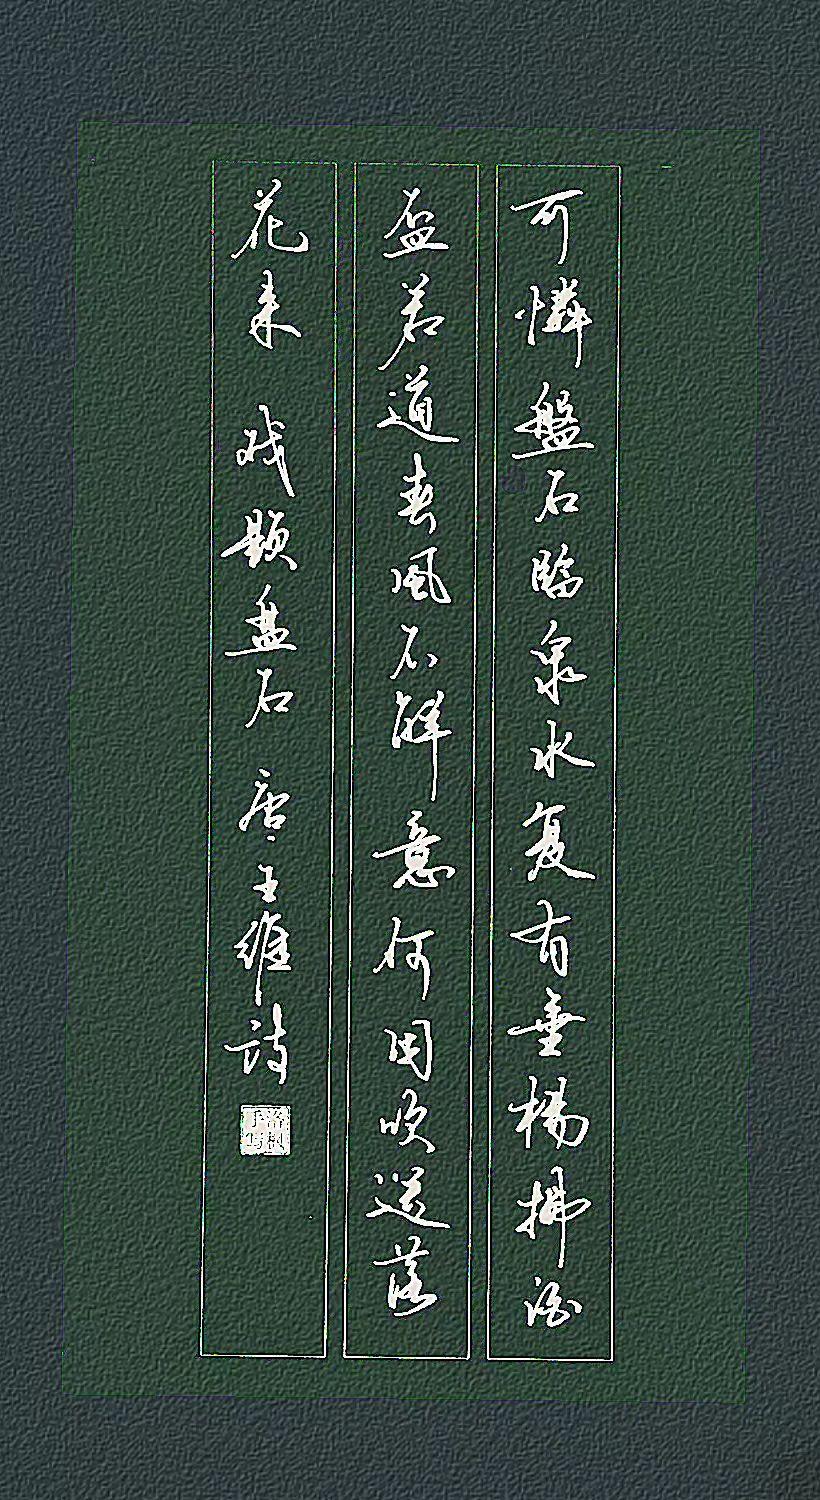 可憐盤石臨泉水复有垂楊拂酒
盃若道春風不解意何用吹送落
花来 戏题盘石 唐王維詩